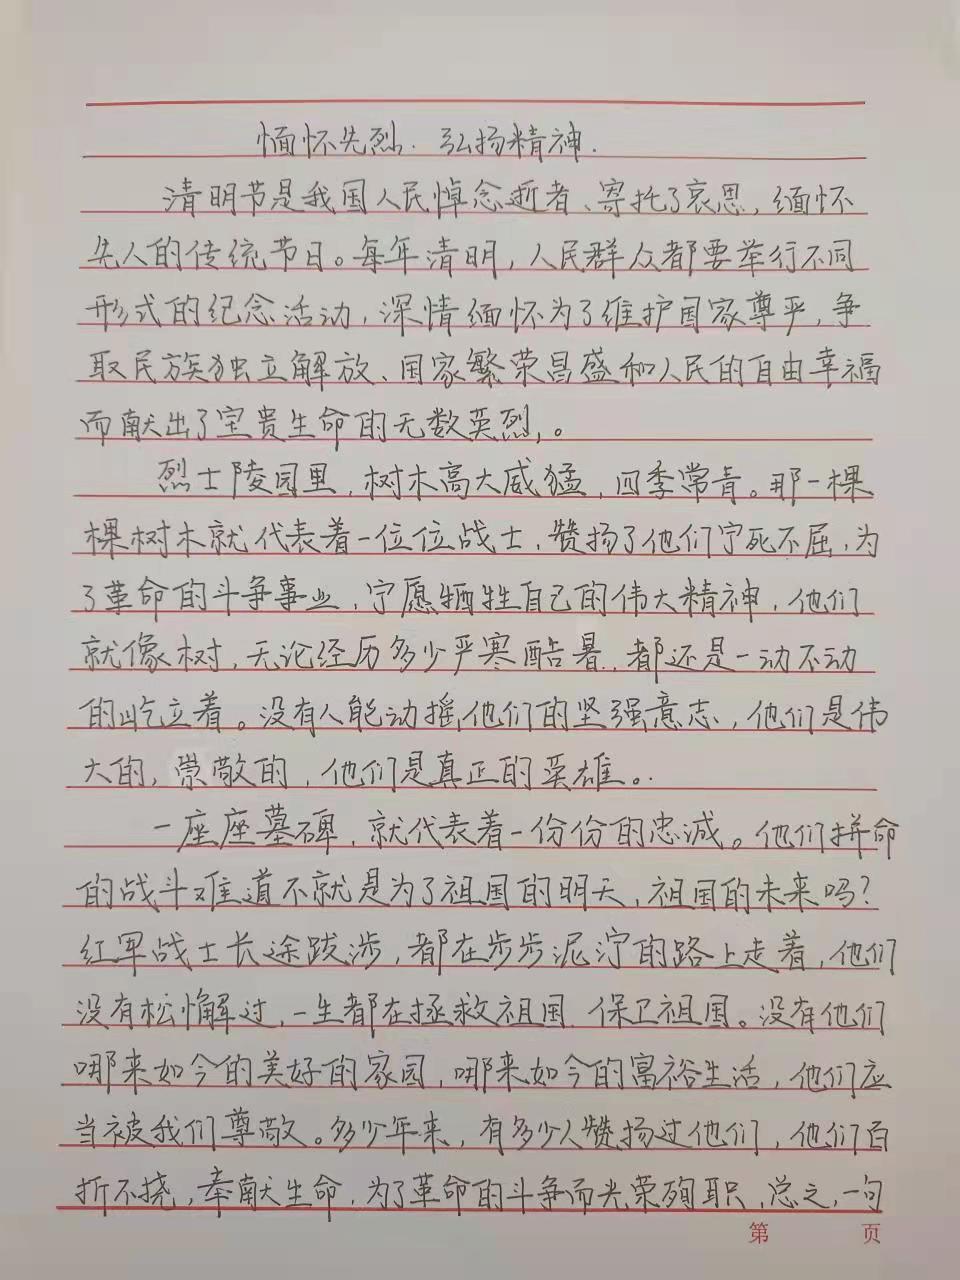 缅怀先烈.弘扬精神.
清明节是我国人民悼念逝者、寄托了哀思，缅怀
先人的传统节日。每年清明，人民群众都要举行不同
形式的纪念活动，深情缅怀为了维护国家尊严，争
取民族独立解放、国家繁荣昌盛和人民的自由幸福
而献出了宝贵生命的无数英烈，。
烈士陵园里，树木高大威猛，四季常青。那一棵
棵树木就代表着一位位战士，赞扬了他们宁死不屈，为
了革命的斗争事业，宁愿牺牲自己的伟大精神，他们
就像树，无论经历多少严寒酷暑，都还是一动不动
的屹立着。没有人能动摇他们的坚强意志，他们是伟
大的，崇敬的，他们是真正的英雄。.
一座座墓碑，就代表着一份份的忠诚。他们拼命
的战斗难道不就是为了祖国的明天，祖国的未来吗？
红军战士长途跋涉，都在步步泥泞的路上走着，他们
没有松懈过，一生都在拯救祖国、保卫祖国。没有他们
哪来如今的美好的家园，哪来如今的富裕生活，他们应
当被我们尊敬。多少年来，有多少人赞扬过他们，他们百
折不挠，奉献生命，为了革命的斗争而光荣殉职，总之，一句
第 页